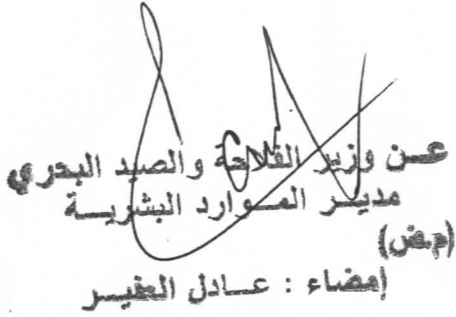 عن وزير الفلاحة والصيد البحري
مدير الموارد البشرية
(م.ض)
إمضاء : عادل العقير